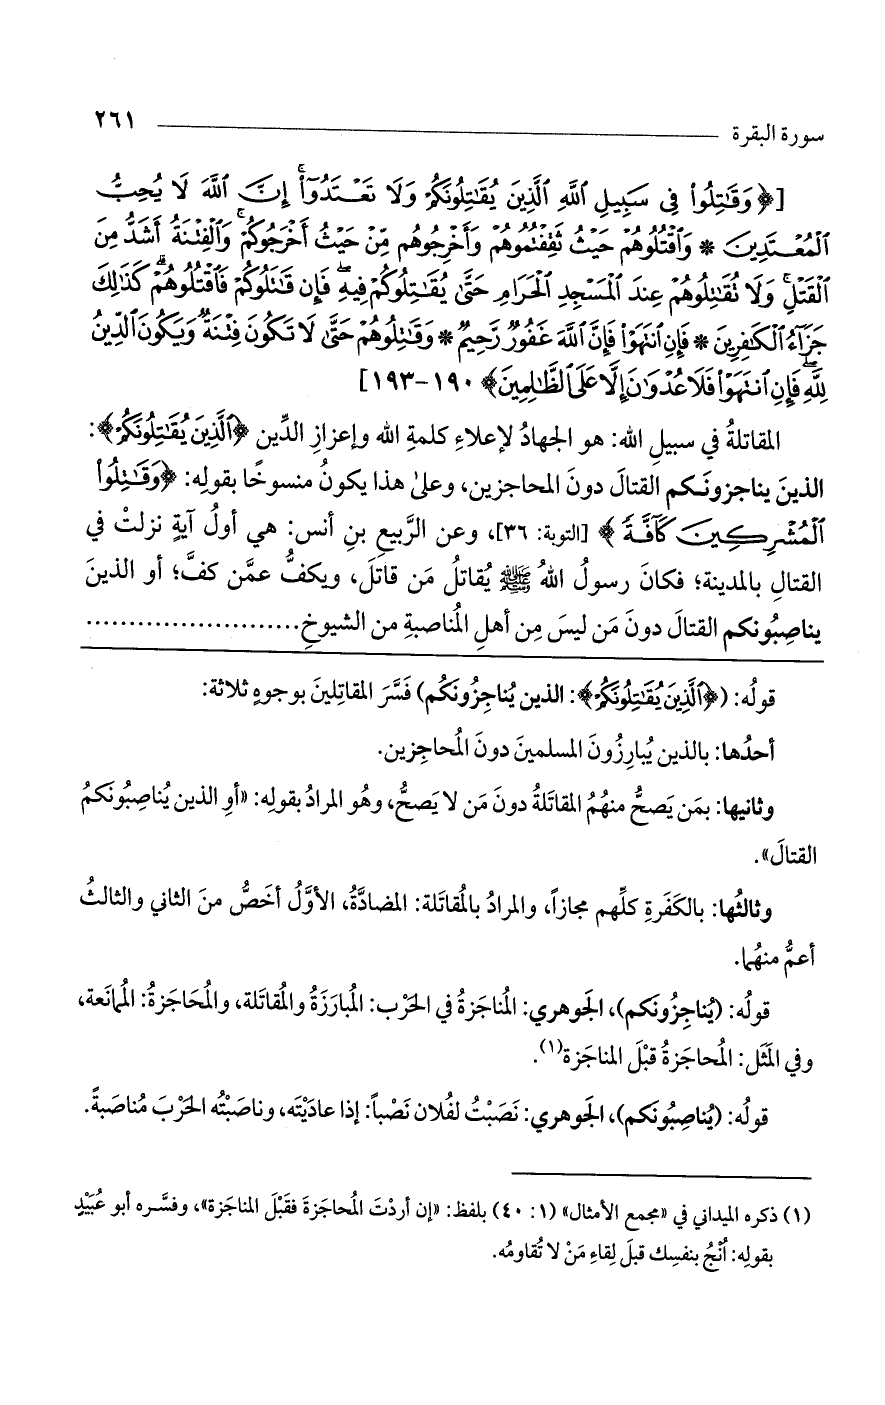 سورة البقرة ٢٦١
[﴿وَقَٰتِلُوا۟ فِى سَبِيلِ ٱللَّهِ ٱلَّذِينَ يُقَٰتِلُونَكُمْ وَلَا تَعْتَدُوٓا۟ ۚ إِنَّ ٱللَّهَ لَا يُحِبُّ
ٱلْمُعْتَدِينَ * وَٱقْتُلُوهُمْ حَيْثُ ثَقِفْتُمُوهُمْ وَأَخْرِجُوهُم مِّنْ حَيْثُ أَخْرَجُوكُمْ ۚ وَٱلْفِتْنَةُ أَشَدُّ مِنَ
ٱلْقَتْلِ ۚ وَلَا تُقَٰتِلُوهُمْ عِندَ ٱلْمَسْجِدِ ٱلْحَرَامِ حَتَّىٰ يُقَٰتِلُوكُمْ فِيهِ ۖ فَإِن قَٰتَلُوكُمْ فَٱقْتُلُوهُمْ ۗ كَذَٰلِكَ
جَزَآءُ ٱلْكَٰفِرِينَ * فَإِنِ ٱنتَهَوْا۟ فَإِنَّ ٱللَّهَ غَفُورٌ رَّحِيمٌ * وَقَٰتِلُوهُمْ حَتَّىٰ لَا تَكُونَ فِتْنَةٌ وَيَكُونَ ٱلدِّينُ
لِلَّهِ ۖ فَإِنِ ٱنتَهَوْا۟ فَلَا عُدْوَٰنَ إِلَّا عَلَى ٱلظَّٰلِمِينَ﴾ ١٩٠-١٩٣]
المقاتلةُ في سبيلِ الله: هو الجهادُ لإعلاءِ كلمةِ الله وإعزازِ الدِّين ﴿ٱلَّذِينَ يُقَٰتِلُونَكُمْ﴾:
الذينَ يناجزونَكم القتالَ دونَ المحاجزين، وعلىٰ هذا يكونُ منسوخًا بقولِه: ﴿وَقَٰتِلُوا۟
ٱلْمُشْرِكِينَ كَآفَّةً﴾ [التوبة: ٣٦]، وعن الرَّبيعِ بنِ أنس: هي أولُ آيةٍ نزلتْ في
القتالِ بالمدينة؛ فكانَ رسولُ اللهُ ﷺ يُقاتلُ مَن قاتلَ، ويكفُّ عمَّن كفَّ؛ أو الذينَ
يناصِبُونكم القتالَ دونَ مَن ليسَ مِن أهلِ المُناصبةِ من الشيوخِ.........................
قولُه: (﴿ٱلَّذِينَ يُقَٰتِلُونَكُمْ﴾: الذين يُناجِزُونَكُم) فَسَّرَ المقاتِلينَ بوجوهٍ ثلاثة:
أحدُها: بالذين يُبارِزُونَ المسلمينَ دونَ المُحاجِزين.
وثانيها: بمَن يَصحُّ منهُمُ المقاتَلةُ دونَ مَن لا يَصحُّ، وهُو المرادُ بقولِه: «أوِ الذين يُناصِبُونَكمُ
القتالَ».
وثالثُها: بالكَفَرةِ كلِّهم مجازاً، والمرادُ بالمُقاتَلة: المضادَّةُ، الأوَّلُ أخَصُّ منَ الثاني والثالثُ
أعمُّ منهُما.
قولُه: (يُناجِزُونَكم)، الجَوهري: المُناجَزةُ في الحَرْب: المُبارَزَةُ والمُقاتَلة، والمُحَاجَزةُ: المُمانَعة،
وفي المَثَل: المُحاجَزةُ قبْلَ المناجَزة(١).
قولُه: (يُناصِبُونَكم)، الجَوهري: نَصَبْتُ لفُلان نَصْباً: إذا عادَيْتَه، وناصَبْتُه الحَرْبَ مُناصَبةً.
(١) ذكره الميداني في «مجمع الأمثال» (١: ٤٠) بلفظ: «إن أردْتَ المُحاجَزةَ فقَبْلَ المناجَزة»، وفسَّره أبو عُبَيْدٍ
بقولِه: اُنْجُ بنفسِك قبلَ لِقاءِ مَنْ لا تُقاومُه.